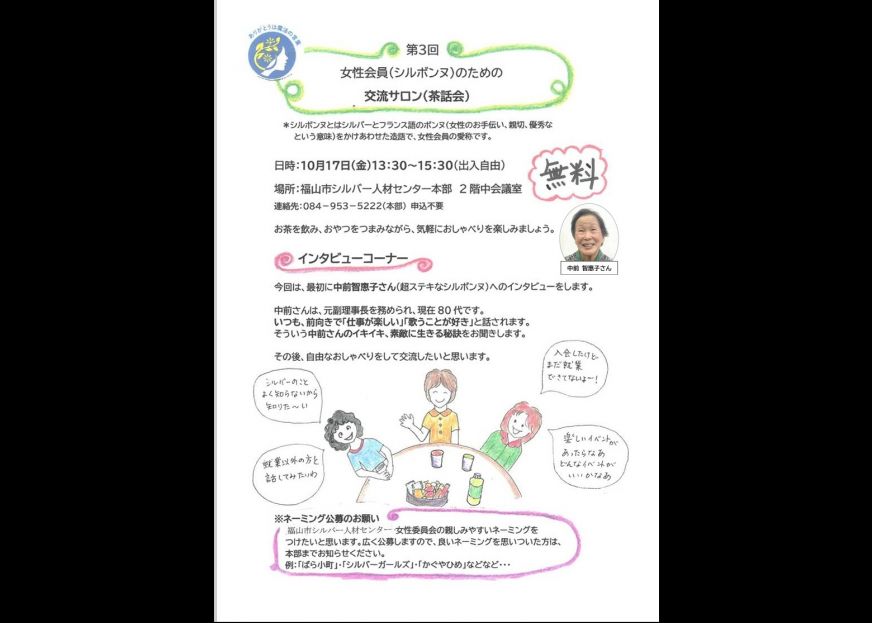 ありがとうは魔法の言葉
第3回
女性会員(シルボンヌ)のための
交流サロン(茶話会)
*シルボンヌとはシルバーとフランス語のボンヌ(女性のお手伝い、親切、優秀な
という意味)をかけあわせた造語で、女性会員の愛称です。
日時:10月17日(金)13:30~15:30(出入自由)
無料
場所:福山市シルバー人材センター本部 2階中会議室
連絡先:084-953-5222(本部) 申込不要
お茶を飲み、おやつをつまみながら、気軽におしゃべりを楽しみましょう。
中前 智惠子さん
インタビューコーナー
今回は、最初に中前智惠子さん(超ステキなシルボンヌ)へのインタビューをします。
中前さんは、元副理事長を務められ、現在80代です。
いつも、前向きで「仕事が楽しい」「歌うことが好き」と話されます。
そういう中前さんのイキイキ、素敵に生きる秘訣をお聞きします。
その後、自由なおしゃべりをして交流したいと思います。
シルバーのこと
よく知らないから
知りた~い
入会したけど
まだ就業
できてないよー!
就業以外の方と
話してみたいわ
楽しいイベントが
あったらなあ
どんなイベントが
いいかなあ
※ネーミング公募のお願い
福山市シルバー人材センター 女性委員会の親しみやすいネーミングを
つけたいと思います。広く公募しますので、良いネーミングを思いついた方は、
本部までお知らせください。
例:「ばら小町」・「シルバーガールズ」・「かぐやひめ」などなど・・・